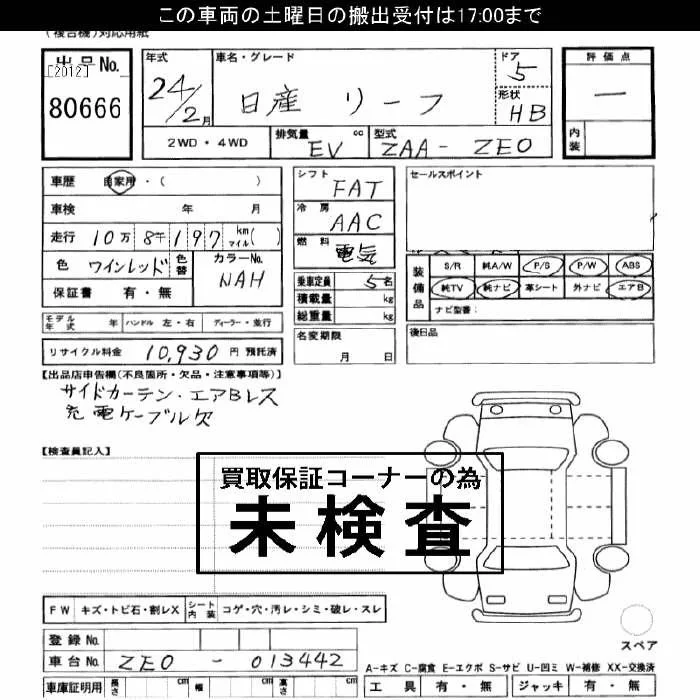 この車両の土曜日の搬出受付は17:00まで
(複合機)対応用紙
出品No.
[2012]
80666
年式
24/2月
車名・グレード
日産 リーフ
ドア
5
形状
HB
評価点
―
内装
2WD・4WD
排気量 cc
EV
型式
ZAA-ZE0
車歴 自家用・( )
車検 年 月
走行 10万 8千 197 km マイル( )
色 ワインレッド 色替 カラーNo. NAH
保証書 有・無
シフト FAT
冷房 AAC
燃料 電気
乗車定員 5名
積載量 kg
総重量 kg
名変期限
月 日
セールスポイント
装備品
S/R 純A/W P/S P/W ABS
純TV 純ナビ 革シート 外ナビ エアB
ナビ型番:
後日品
モデル年式 年 ハンドル 左・右 ディーラー・並行
リサイクル料金 10,930 円 預託済
【出品店申告欄(不良箇所・欠品・注意事項等)】
サイドカーテン・エアBレス
充電ケーブル欠
【検査員記入】
買取保証コーナーの為
未検査
FW キズ・トビ石・割レX シート内装 コゲ・穴・汚レ・シミ・破レ・スレ
登録No.
車台No. ZE0-013442
車庫証明用 長さ cm 幅 cm 高さ cm
スペア
A-キズ C-腐食 E-エクボ S-サビ U-凹ミ W-補修 XX-交換済
工具 有・無 ジャッキ 有・無